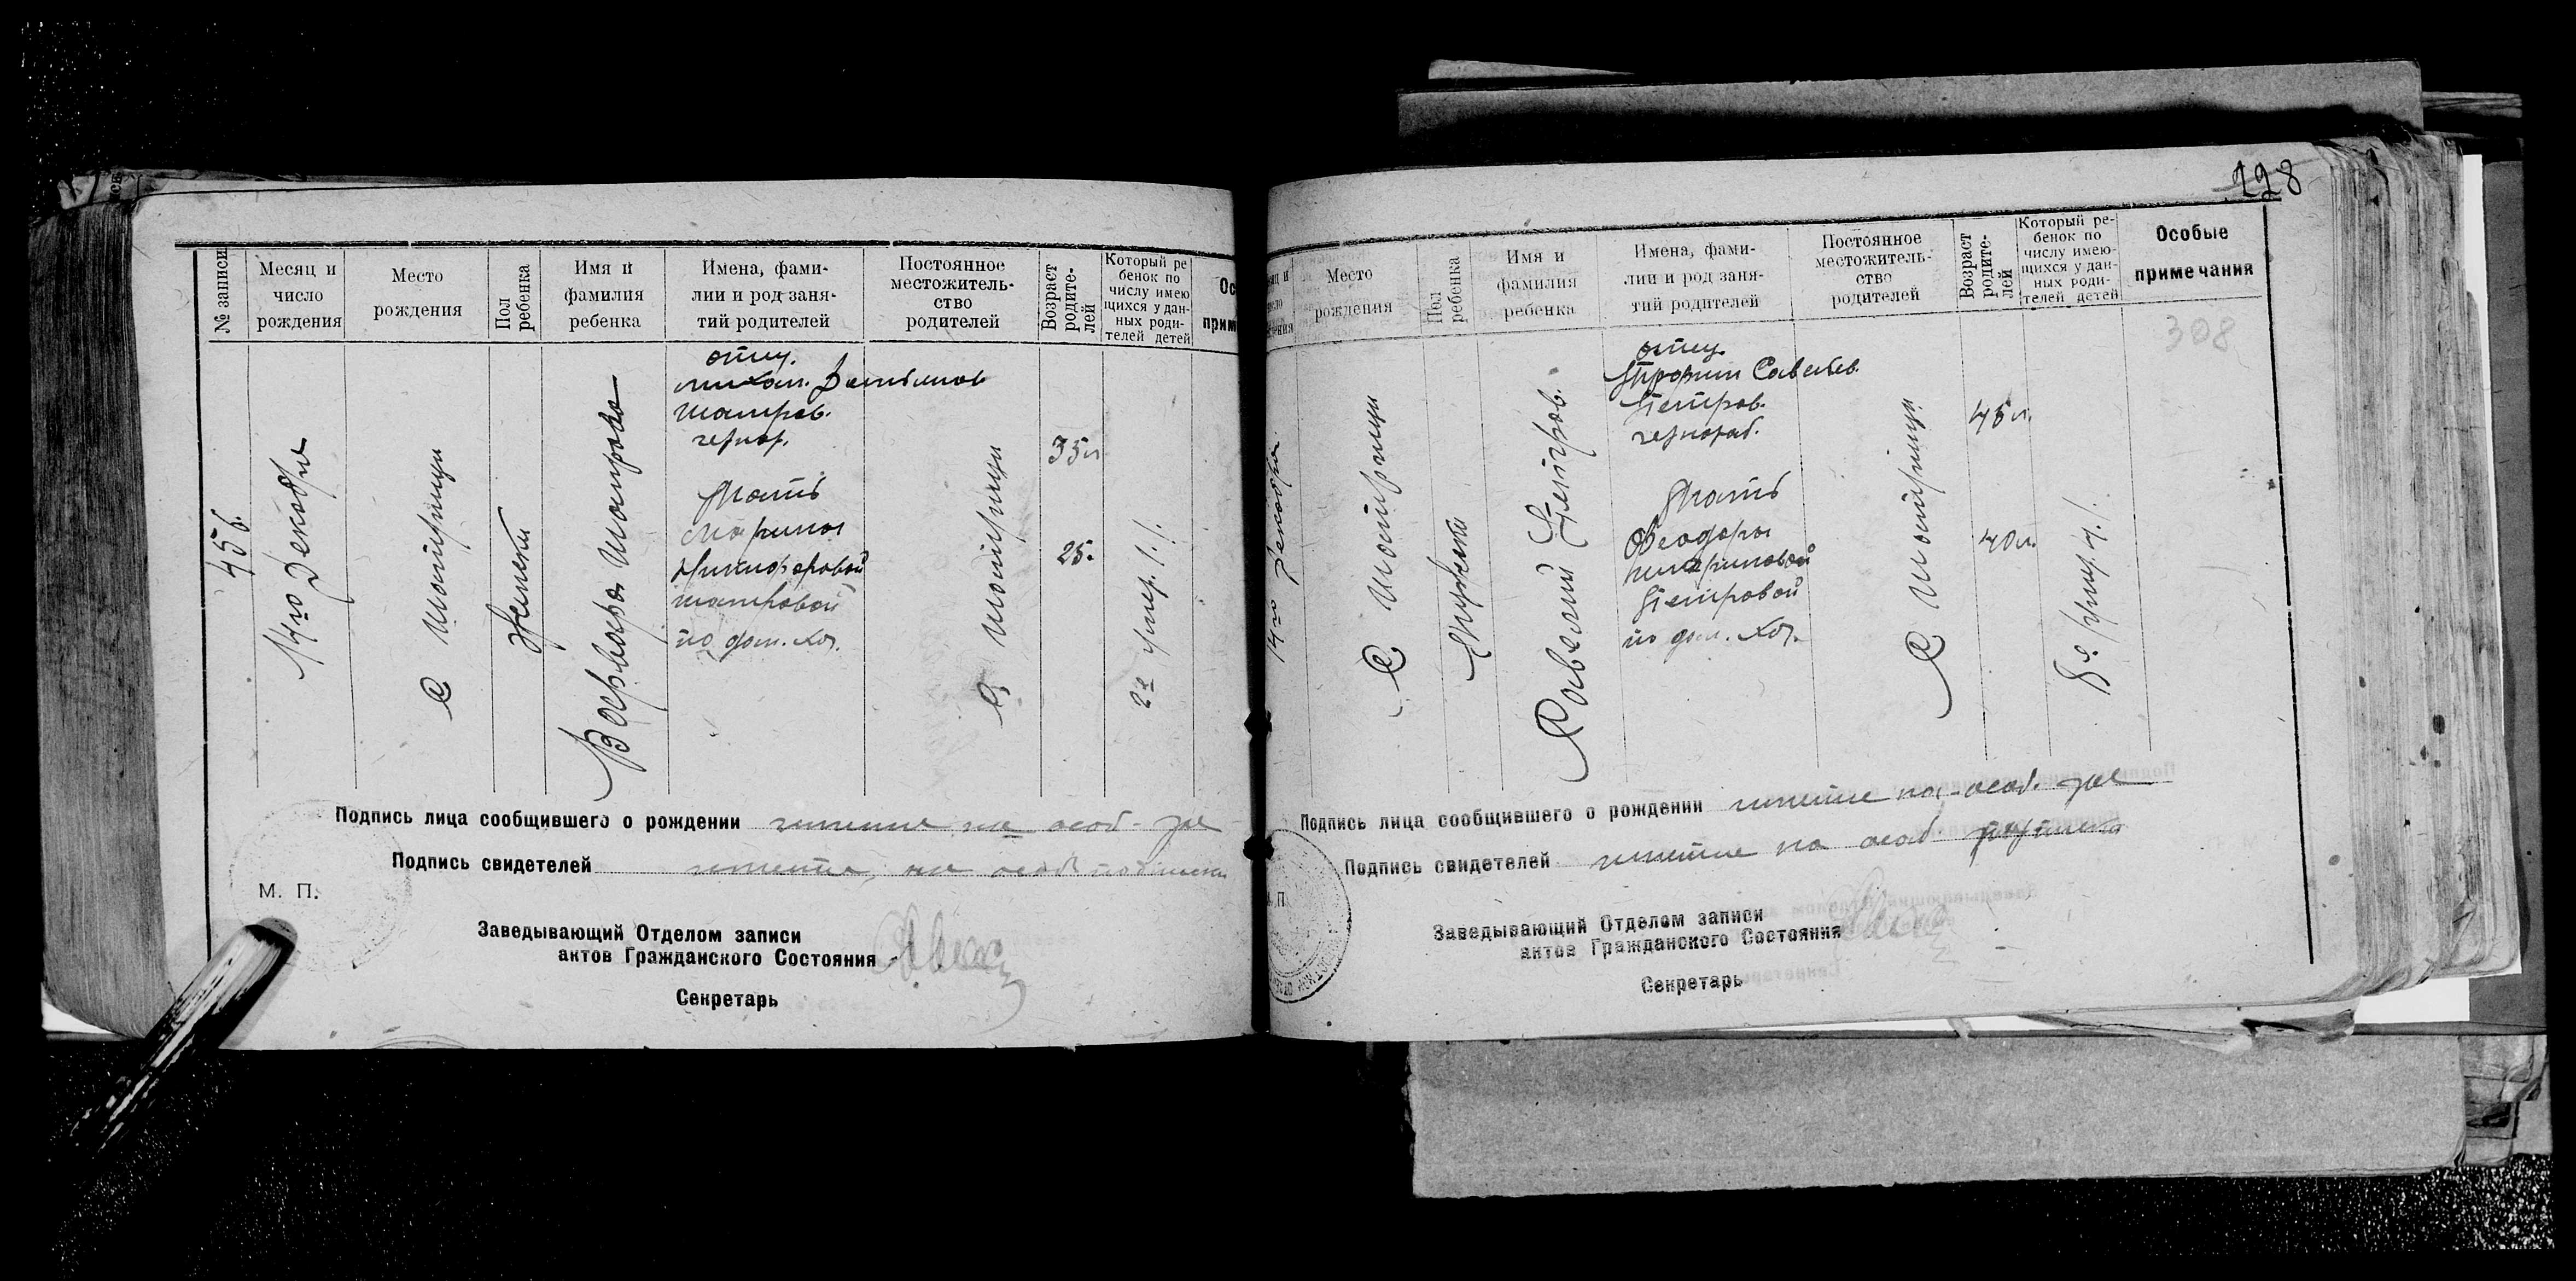 № записи
Месяц и
число
рождения
Место
рождения
Пол
ребенка
Имя и
фамилия
ребенка
Имена, фами-
лии и род заня-
тий родителей
Постоянное
местожитель-
ство
родителей
Возраст
родите-
лей
Который ре
бенок по
числу имею
щихся у дан-
ных роди-
телей детей
Ос
прим
456.
14го Декабря
С Шатрищи
Женски
Варвара Шатрова
отец.
Шатров.
чернор.
Мать
Марина
Никифоровой
Шатровой
по дом. хоз.
С Шатрищи
35 л
25.
2е умер. 1.
Подпись лица сообщившего о рождении имеется на особ.
Подпись свидетелей имеется на особ подписка
М. П.
Заведывающий Отделом записи
актов Гражданского Состояния
Секретарь
128
Место
рождения
Пол
ребенка
Имя и
фамилия
ребенка
Имена, фами-
лии и род заня-
тий родителей
Постоянное
местожитель-
ство
родителей
Возраст
родите-
лей
Который ре-
бенок по
числу имею-
щихся у дан-
ных роди-
телей детей
Особые
примечания
308
14го Декабря
С Шатрищи
Мужски
Савелий Петров.
отец.
Трофим Савельев.
Петров.
чернораб.
Мать
Феодора
Петровой
по дом. хоз.
С Шатрищи
45 л.
40 л.
8й умер. 4.
Подпись лица сообщившего о рождении имеется на особ.
Подпись свидетелей имеется на особ
М. П.
Заведывающий Отделом записи
актов Гражданского Состояния
Секретарь